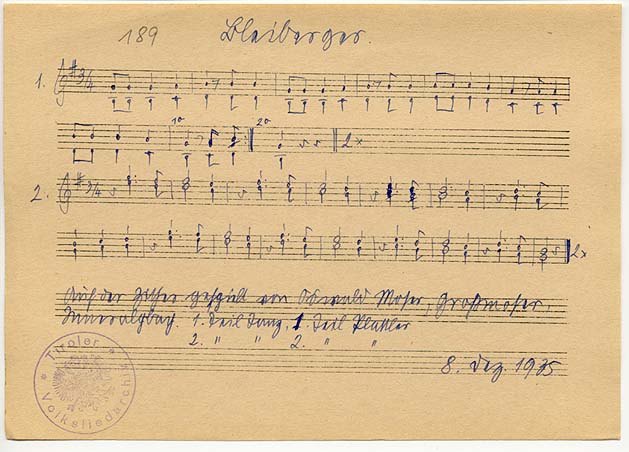 189 Bleiberger.
1. 3/4
10 20 2x
2. 3/4
2x
Auf der Zither gespielt von Oswald Moser, Großmoser,
Inneralpbach. 1. Teil Tanz, 1. Teil Plattler
2. " " 2. " "
8. Dez. 1935
* Tiroler * Volksliedarchiv